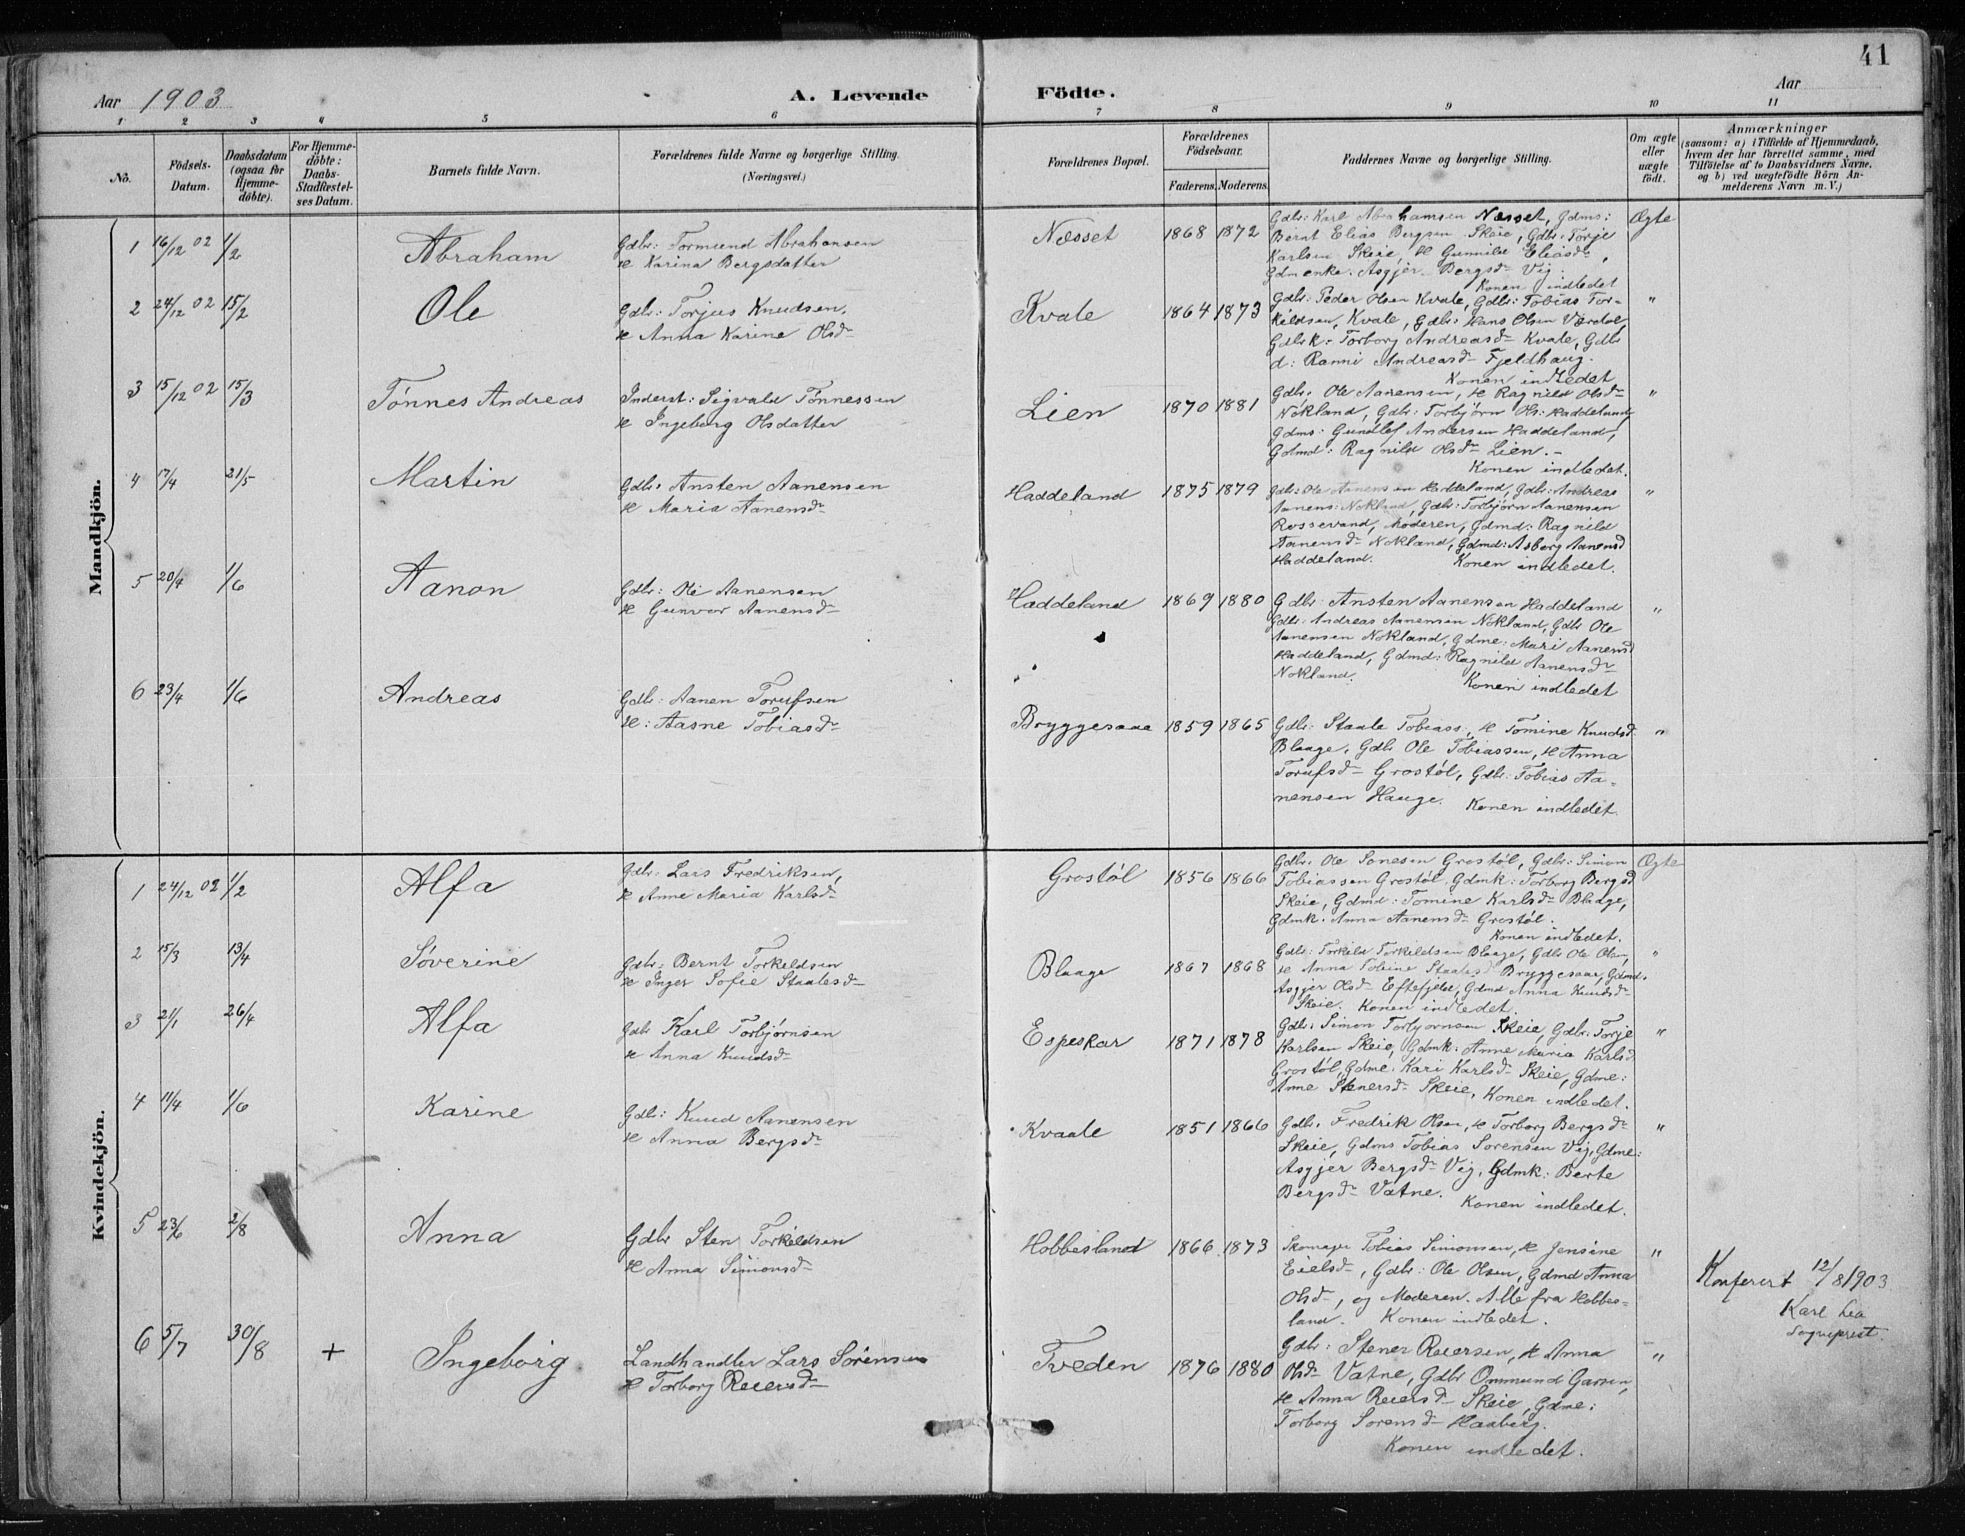 41
Aar 1903
A. Levende Födte.
Aar
1 2 3 4 5 6 7 8 9 10 11
No.
Födsels-Datum.
Daabsdatum (ogsaa for Hjemme-döbte).
For Hjemme-döbte: Daabs-Stadfæstel-ses Datum.
Barnets fulde Navn.
Forældrenes fulde Navne og borgerlige Stilling. (Næringsvei.)
Forældrenes Bopæl.
Forældrenes Födselsaar.
Faderens. Moderens.
Faddernes Navne og borgerlige Stilling.
Om ægte eller uægte födt.
Anmærkninger
(saasom: a) i Tilfælde af Hjemmedaab,
hvem der har forrettet samme, med
Tilföielse af to Daabsvidners Navne,
og b) ved uægtefödte Börn An-
melderens Navn m. V.)
Mandkjön.
1 16/12 02 1/2 Abraham
Gdbr: Tormund Abrahamsen
H Karina Bergsdatter
Næsset 1868 1872
Gdbr: Karl Abrahamsen Næsset, Gdms:
Bernt Elias Bergsen Skeie, Gdbr: Torje
Karlsen Skeie, H Gunnild Eliasd.,
Gdmenke: Asgjer Bergsd. Vig.
Konen indledet
Ægte
2 24/12 02 15/2 Ole
Gdbr: Torjus Knudsen,
H Anna Karine Olsd.
Kvale 1864 1873
Gdbr: Peder Olsen Kvale, Gdbr: Tobias Tor-
kildsen, Kvale, Gdbr: Hans Olsen Værdal,
Gdbrk: Torborg Andreasd. Kvale, Gdbr
d: Ranni Andreasd. Fjeldhaug.
Konen indledet
"
3 15/12 02 15/3 Tønnes Andreas
Inderst: Sigvald Tønnessen
H Ingeborg Olsdatter
Lien 1870 1881
Gdbr. Ole Aanensen, H Ragnild Olsd.
Nökland, Gdbr: Torbjørn Ols: Haddeland,
Gdms: Gundlef Andersen Haddeland,
Gdmd: Ragnild Olsd. Lien. -
Konen indledet.
"
4 17/4 21/5 Martin
Gdbr. Ansten Aanensen
H Maria Aanensd.
Haddeland 1875 1879
Gdbr: Ole Aanensen Haddeland, Gdbr: Andreas
Aanens: Nokland, Gdbr: Torbjörn Aanensen
Rossevand, Moderen, Gdmd: Ragnild
Aanensd. Nokland, Gdmd: Asborg Aanensd
Haddeland. Konen indledet.
"
5 20/4 1/6 Aanon
Gdbr: Ole Aanensen
H Gunvor Aanensd.
Haddeland 1869 1880
Gdbr. Ansten Aanensen Haddeland
Gdbr. Andreas Aanensen Nokland, Gdbr Ole
Aanensen Nokland, Gdme: Mari Aanensd
Haddeland, Gdmd: Ragnild Aanensd.
Nokland. Konen indledet
"
6 23/4 1/6 Andreas
Gdbr: Aanen Torufsen
H: Aasne Tobiasd.
Bryggesaae 1859 1865
Gdbr: Staale Tobiass., H Tomine Knudsd.
Blaage, Gdbr Ole Tobiassen, H Anna
Torufsd. Grostöl, Gdbr: Tobias Aa-
nensen Hauge. Konen indledet.
"
Kvindekjön.
1 24/12 02 1/2 Alfa
Gdbr: Lars Fredriksen,
H Anne Maria Karlsd.
Grostöl 1856 1866
Gdbr. Ole Sonesen Grostöl, Gdbr: Simon
Tobiassen Grostöl, Gdmk: Torborg Bergsd
Skeie, Gdmd: Tomine Karlsd. Blaage,
Gdmk. Anna Aanensd. Grostöl.
Konen indledet.
Ægte
2 15/3 13/4 Söverine
Gdbr: Bernt Torkeldsen
H Inger Sofie Staalesd.
Blaage 1867 1868
Gdbr: Torkild Torkildsen Blaage, Gdbr Ole Olsen,
H Anna Tobine Staalesd Bryggesaae, Gdmd.
Asgjer Olsd. Eftefjeld, Gdmd Anna Knudsd.
Skeie. Konen indledet.
"
3 21/1 26/4 Alfa
Gdbr Karl Torbjørnsen
H Anna Knudsd.
Espeskar 1871 1878
Gdbr: Simon Torbjornsen Skeie, Gdbr: Torje
Karlsen Skeie, Gdmk: Anne Maria Karlsd.
Grostøl, Gdme. Kari Karlsd. Skeie, Gdme:
Anne Stenersd. Skeie, Konen indledet.
"
4 11/4 1/6 Karine
Gdbr: Knud Aanensen
H Anna Bergsd.
Kvaale 1851 1866
Gdbr. Fredrik Olsen, H Torborg Bergsd.
Skeie, Gdms Tobias Sorensen Vig, Gdme:
Asgjer Bergsd. Vig, Gdmk: Berte
Bergsd. Vatne. Konen indledet.
"
5 23/6 2/8 Anna
Gdbr Sten Torkeldsen
H Anna Simonsd.
Hobbesland 1866 1873
Skomager Tobias Simonsen, H Jensine
Eielsd., Gdbr: Ole Olsen, Gdmd Anna
Olsd., og Moderen. Alle fra Hobbes-
land. Konen indledet.
"
Konferert 12/8 1903
Karl Lea
Sogneprest.
6 5/7 30/8 + Ingeborg
Landhandler Lars Sörensen
H Torborg Reiersd.
Tveden 1876 1880
Gdbr: Stener Reiersen, H Anna
Olsd. Vatne, Gdbr Ommund Garsen,
H Anna Reiersd. Skeie, Gdme:
Torborg Sorensd. Haaberg.
Konen indledet.
"